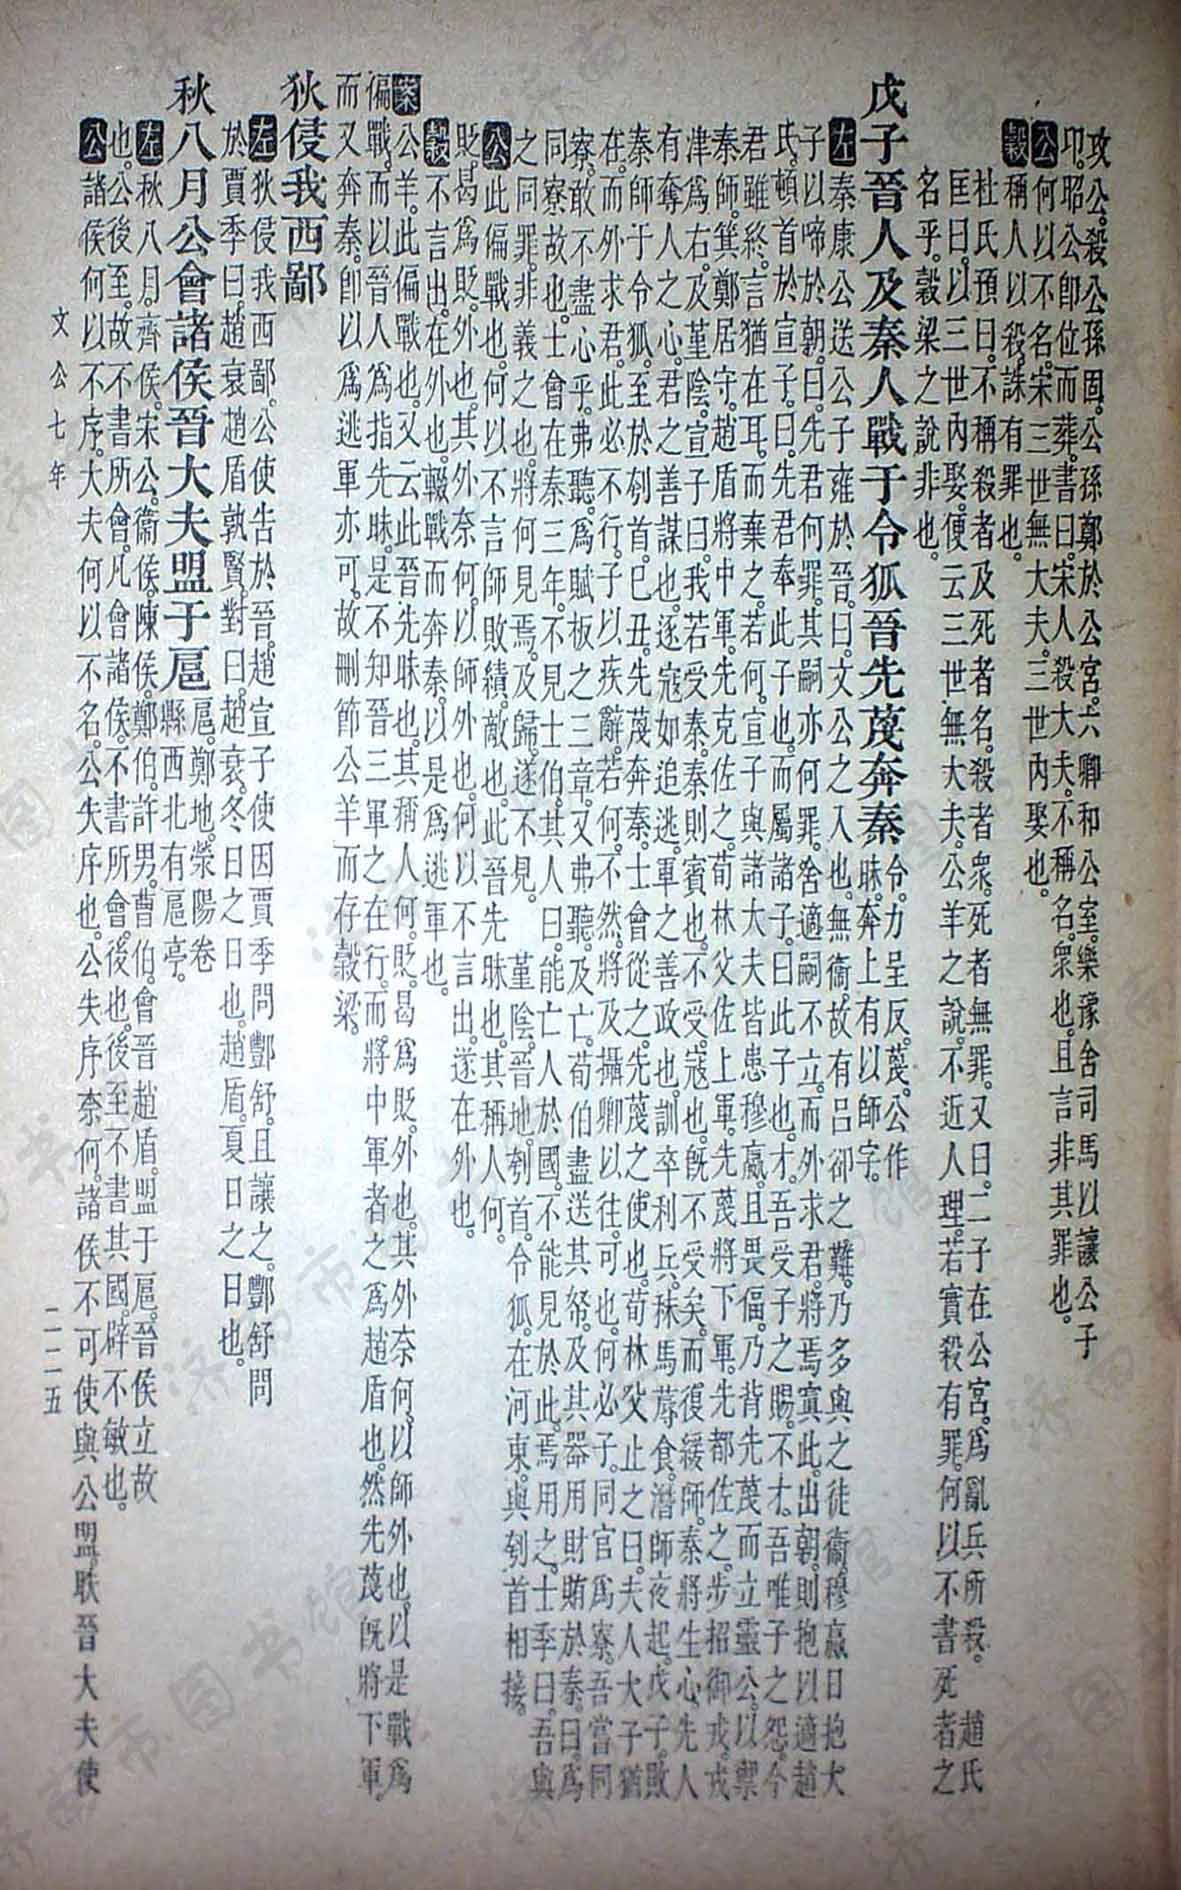 攻公。殺公孫固。公孫鄭於公宮。六卿和公室。樂豫舍司馬以讓公子
卬。昭公卽位而葬。書曰。宋人殺大夫。不稱名。衆也。且言非其罪也。
公何以不名。宋三世無大夫。三世內娶也。
穀稱人以殺。誅有罪也。
杜氏預曰。不稱殺者及死者名。殺者衆。死者無罪。又曰。二子在公宮。爲亂兵所殺。 趙氏
匡曰。以三世內娶。便云三世無大夫。公羊之說。不近人理。若實殺有罪。何以不書死者之
名乎。穀梁之說非也。
戊子晉人及秦人戰于令狐晉先蔑奔秦 令。力呈反。蔑。公作
昧。奔上有以師字。
左秦康公送公子雍於晉。曰。文公之入也。無衞。故有呂郤之難。乃多與之徒衞。穆嬴日抱大
子以啼於朝。曰。先君何罪。其嗣亦何罪。舍適嗣不立。而外求君。將焉寘此。出朝。則抱以適趙
氏。頓首於宣子。曰。先君奉此子也。而屬諸子。曰。此子也才。吾受子之賜。不才。吾唯子之怨。今
君雖終。言猶在耳。而棄之。若何。宣子與諸大夫皆患穆嬴。且畏偪。乃背先蔑而立靈公。以禦
秦師。箕鄭居守。趙盾將中軍。先克佐之。荀林父佐上軍。先蔑將下軍。先都佐之。步招御戎。戎
津爲右。及堇陰。宣子曰。我若受秦。秦則賓也。不受。寇也。旣不受矣。而復緩師。秦將生心。先人
有奪人之心。軍之善謀也。逐寇如追逃。軍之善政也。訓卒利兵。秣馬蓐食。潛師夜起。戊子。敗
秦師于令狐。至於刳首。己丑。先蔑奔秦。士會從之。先蔑之使也。荀林父止之曰。夫人大子猶
在。而外求君。此必不行。子以疾辭。若何。不然。將及。攝卿以往。可也。何必子。同官爲寮。吾嘗同
寮。敢不盡心乎。弗聽。爲賦板之三章。又弗聽。及亡。荀伯盡送其帑。及其器用財賄於秦。曰。爲
同寮故也。士會在秦三年。不見士伯。其人曰。能亡人於國。不能見於此。焉用之。士季曰。吾與
之同罪。非義之也。將何見焉。及歸。遂不見。 堇陰。晉地。刳首。令狐。在河東。與刳首相接。
公此偏戰也。何以不言師敗績。敵也。此晉先昧也。其稱人何。
貶。曷爲貶。外也。其外奈何。以師外也。何以不言出。遂在外也。
穀不言出。在外也。輟戰而奔秦。以是爲逃軍也。
案公羊。此偏戰也。又云此晉先昧也。其稱人何。貶。曷爲貶。外也。其外奈何。以師外也。以是戰爲
偏戰。而以晉人爲指先昧。是不知晉三軍之在行。而將中軍者之爲趙盾也。然先蔑旣將下軍。
而又奔秦。卽以爲逃軍亦可。故刪節公羊而存穀梁。
狄侵我西鄙
左狄侵我西鄙。公使告於晉。趙宣子使因賈季問酆舒。且讓之。酆舒問
於賈季曰。趙衰趙盾孰賢。對曰。趙衰。冬日之日也。趙盾。夏日之日也。
秋八月公會諸侯晉大夫盟于扈 扈。鄭地。滎陽卷
縣西北有扈亭。
左秋。八月。齊侯。宋公。衞侯。陳侯。鄭伯。許男。曹伯。會晉趙盾。盟于扈。晉侯立故
也。公後至。故不書所會。凡會諸侯。不書所會。後也。後至不書其國。辟不敏也。
公諸侯何以不序。大夫何以不名。公失序也。公失序奈何。諸侯不可使與公盟。眣晉大夫使
文公七年
二一五